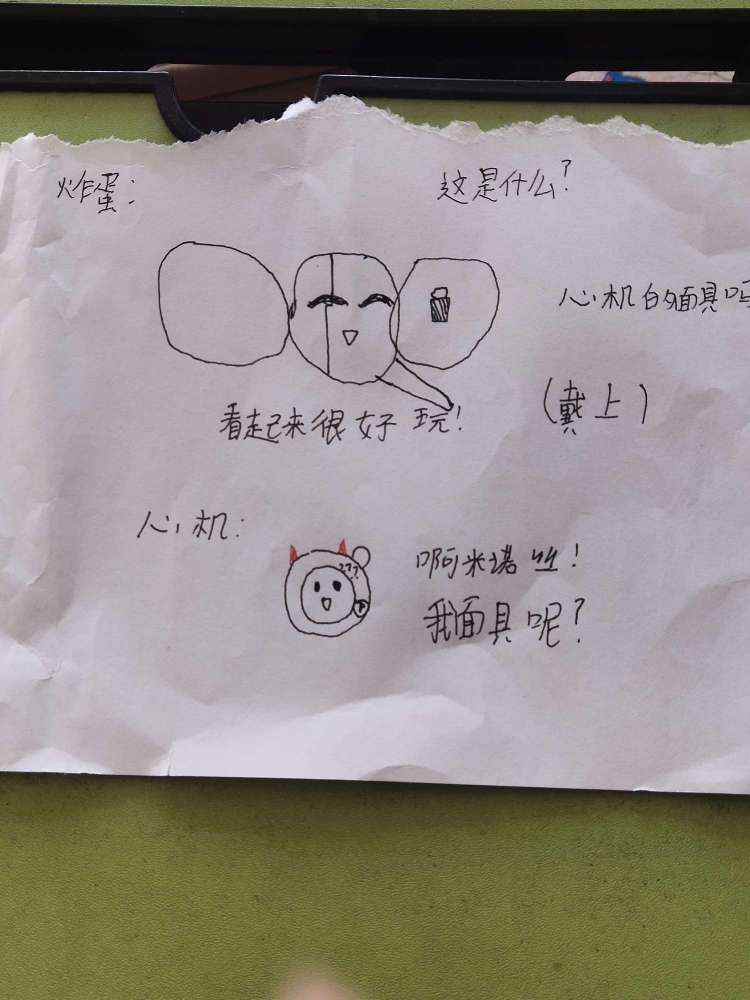 炸蛋：
这是什么？
心机的面具吗
看起来很好玩！
（戴上）
心机：
？？？
啊米诺丝！
我面具呢？